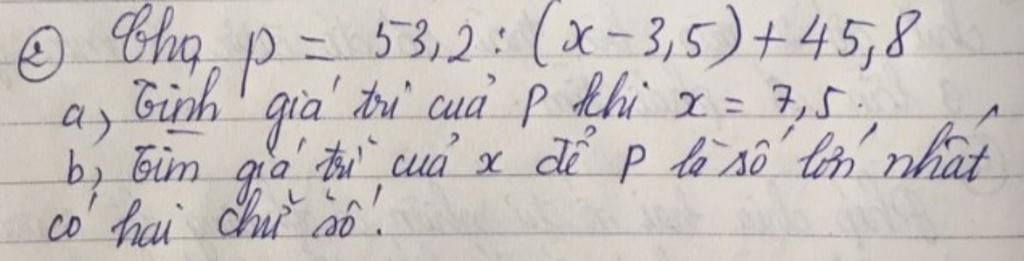 ② Cho P = 53,2 : (x - 3,5) + 45,8
a, Tính giá trị của P khi x = 7,5.
b, Tìm giá trị của x để P là số lớn nhất
có hai chữ số!